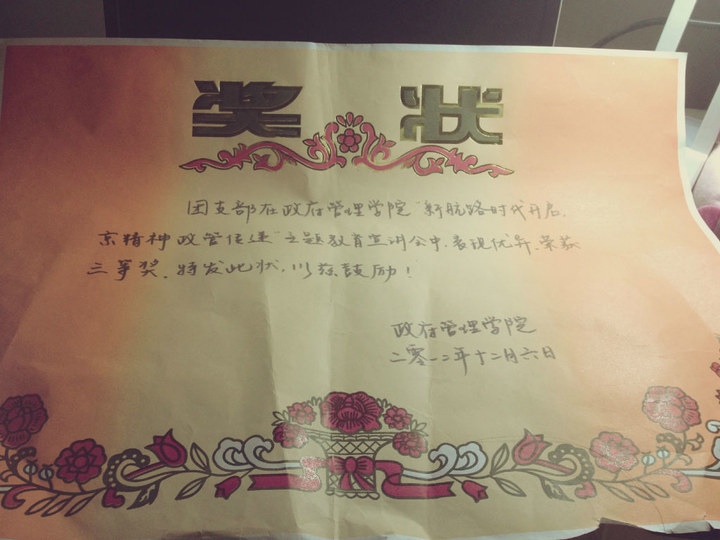 奖状
团支部在政府管理学院"新航路时代开启,
京精神政管传递"主题教育宣讲会中,表现优异,荣获
三等奖,特发此状,以兹鼓励!
政府管理学院
二零一二年十二月六日